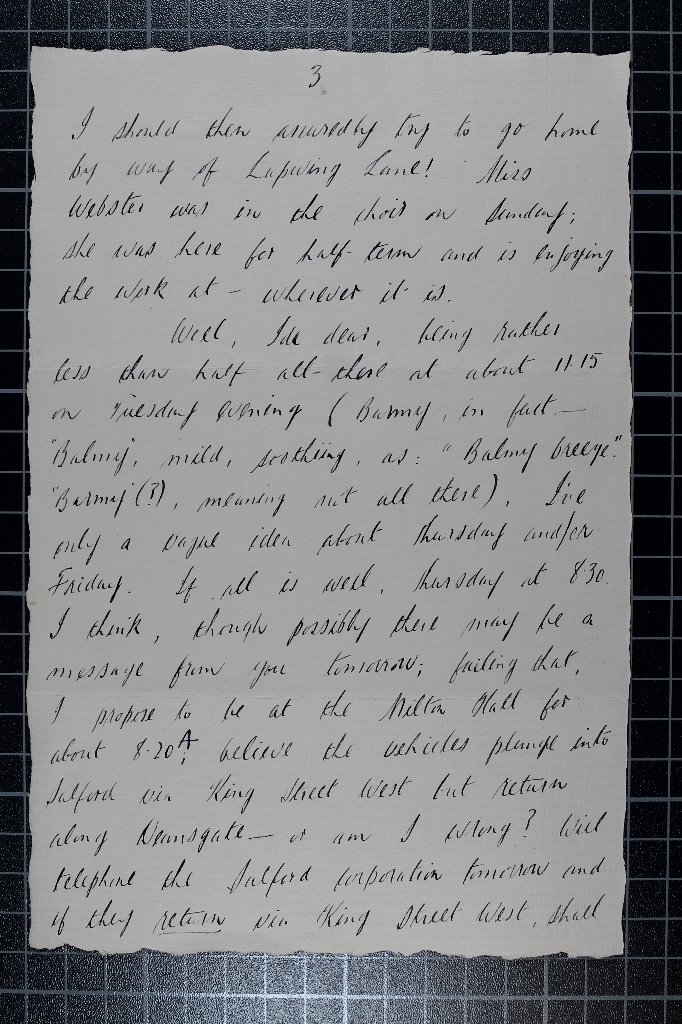 3
I should then assuredly try to go home
by way of Lapwing Lane! Miss
Webster was in the choir on Sunday;
she was here for half-term and is enjoying
the work at – wherever it is.
Well, Ida dear, being rather
less than half all-there at about 11.15
on Tuesday evening (Barmy, in fact –
"Balmy", mild, soothing, as: "Balmy breeze".
"Barmy" (?), meaning not all there), I've
only a vague idea about Thursday and/or
Friday. If all is well, Thursday at 8.30.
I think, though possibly there may be a
message from you tomorrow; failing that,
I propose to be at the Milton Hall for
about 8.20. I believe the vehicles plunge into
Salford via King Street West but return
along Deansgate – or am I wrong? Will
telephone the Salford corporation tomorrow and
if they return via King Street West, shall